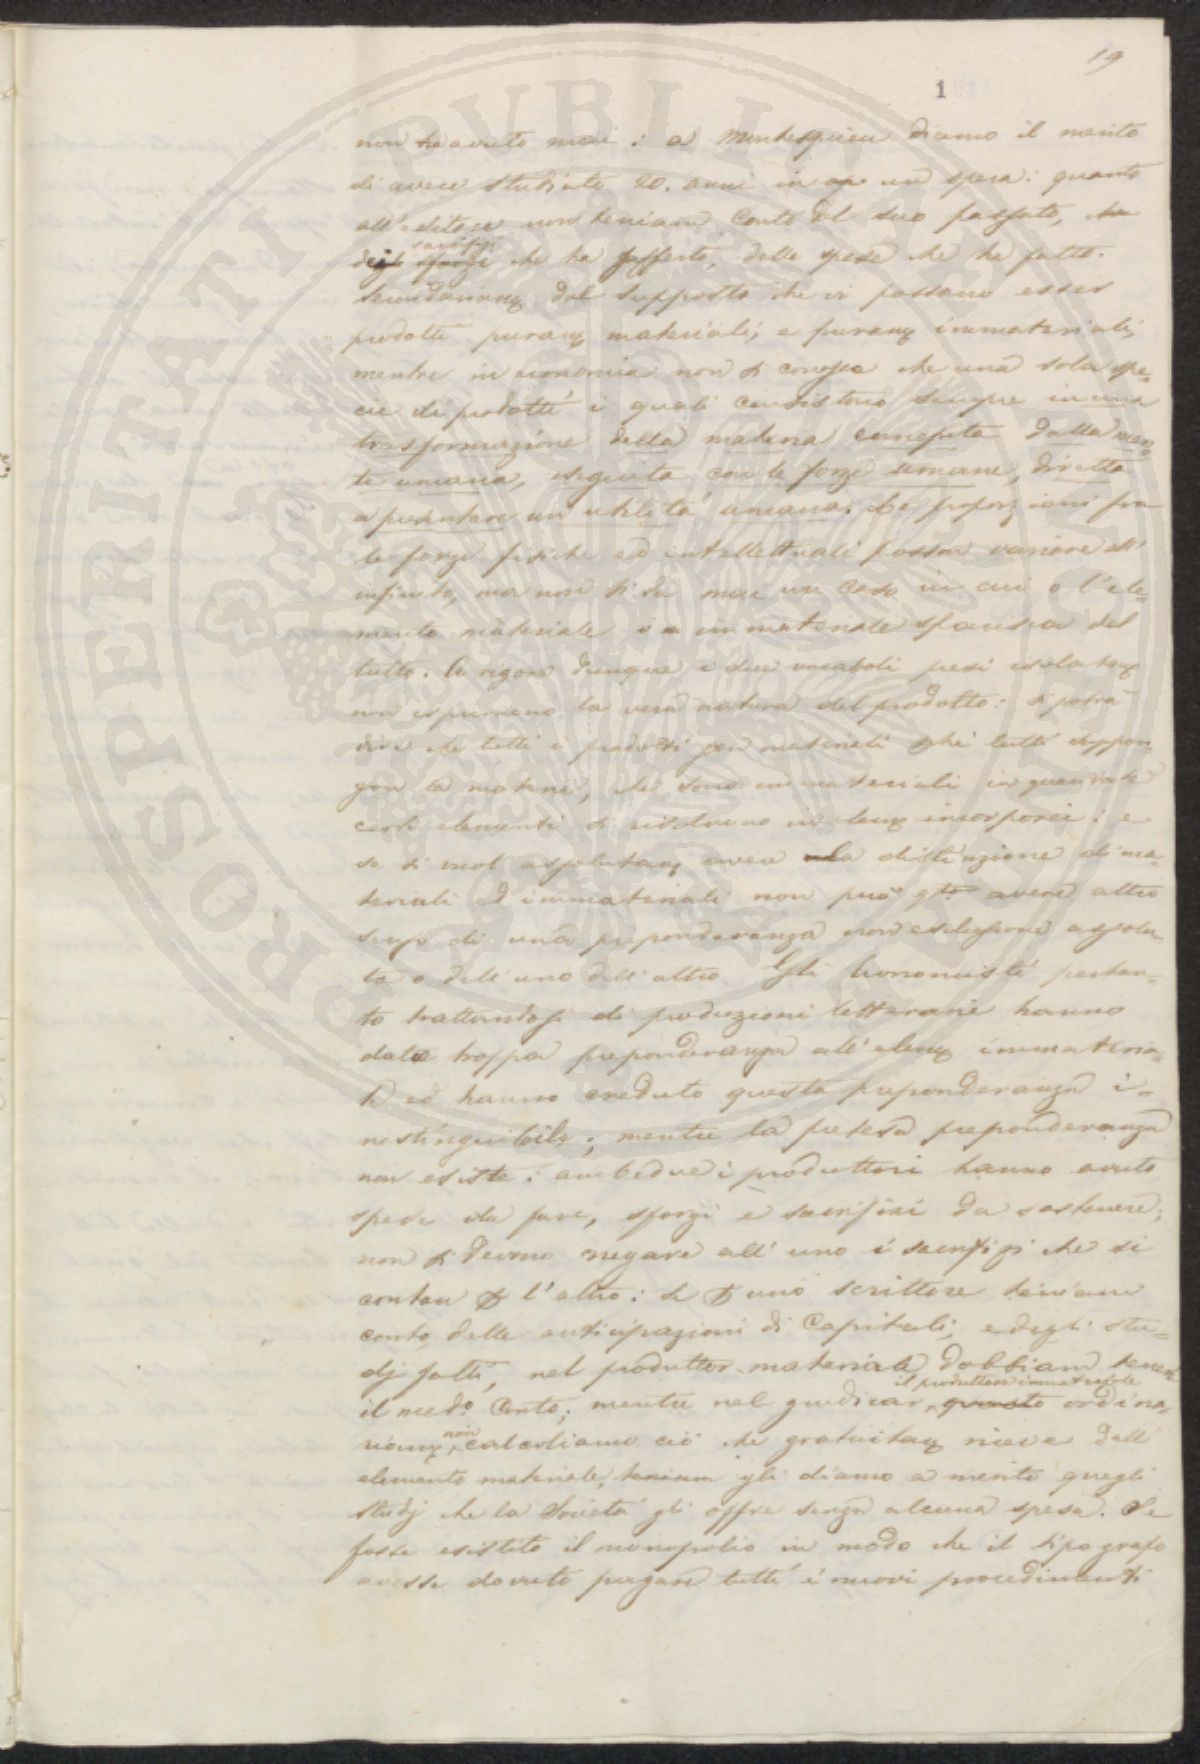 19
1
non ha avuto mai : a Montesquieu diamo il merito
di avere studiato 20. anni in un opera : quanto
all'editore non teniam conto del suo passato, che
degli sforzi sacrifizj che ha sofferto, delle spese che ha fatto.
Secondariamte dal supposto che vi possano esser
prodotti puramte materiali, e puramte immateriali,
mentre in economia non si conosce che una sola spe-
cie di prodotti i quali consistono sempre in una
trasformazione della materia concepita dalla men-
te umana, eseguita con le forze umane, diretta
a presentare un'utilità umana. Le proporzioni fra
le forze fisiche ed intellettuali posson variare all'
infinito, ma non si dà mai un caso in cui o l'ele-
mento materiale o immateriale sparisca del
tutto. A rigore dunque i due vocaboli presi isolatamte
non esprimono la vera natura del prodotto : si potrà
dire che tutti i prodotti son materiali perchè tutti suppon-
gon la materia, che sono immateriali in quanto che
certi elementi si risolvono in elemti incorporei : e
se si vuol assolutamte avere la distinzione di ma-
teriali ed immateriali non può qto avere altro
senso di una preponderanza non esclusione assolu-
ta o dell'uno dell'altro. Gli Economisti pertan-
to trattandosi di produzioni letterarie hanno
dato troppa preponderanza all'elemto immateria-
le ed hanno creduto questa preponderanza i-
nestinguibile ; mentre la pretesa preponderanza
non esiste : ambedue i produttori hanno avuto
spese da fare, sforzi e sacrifizi da sostenere ;
non si devono negare all'uno i sacrifizi che si
contan per l'altro : se per uno scrittore teniam
conto delle anticipazioni di Capitali, e degli stu-
dj fatti, nel produttor materiale dobbiam tener
il medo conto ; mentre nel giudicar, questo il produttore immateriale ordina-
riamte, non calcoliamo ciò che gratuitamte riceve dall'
elemento materiale, teniam gli diamo a merito quegli
studj che la Società gli offre senza alcuna spesa. Se
fosse esistito il monopolio in modo che il tipografo
avesse dovuto pagare tutti i nuovi procedimenti